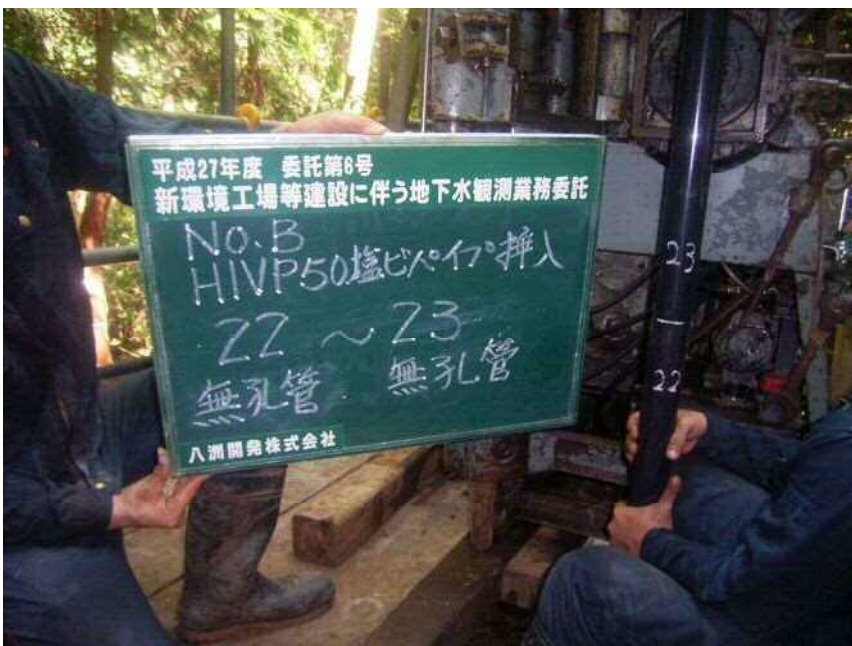 平成27年度 委託第6号
新環境工場等建設に伴う地下水観測業務委託
No.B
HIVP50塩ビパイプ挿入
22 ～ 23
無孔管 無孔管
八洲開発株式会社
23
22